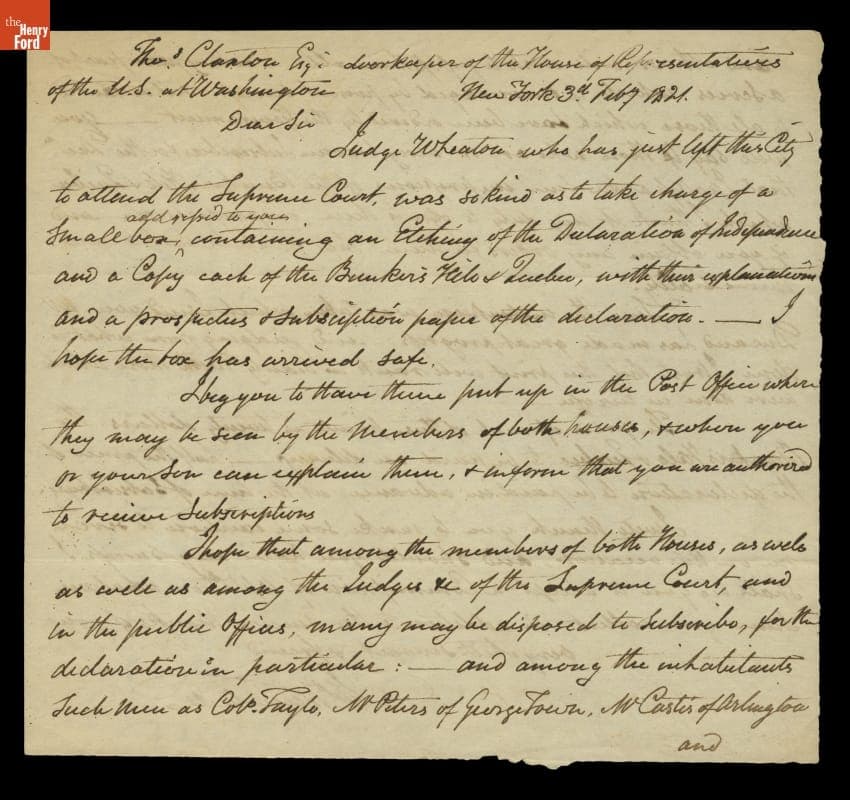 the
Henry
Ford
Thos. Claxton Esqr. doorkeeper of the House of Representatives
of the U.S. at Washington New York 3d. Feby 1821.
Dear Sir
Judge Wheaton who has just left this City
to attend the Supreme Court, was so kind as to take charge of a
and to you
small box, containing an Etching of the Declaration of Independence
and a Copy each of the Bunker's Hill & Quebec, with their explanations
and a prospectus & subscription paper of the declaration. — I
hope the box has arrived safe.
I beg you to have them put up in the Post Office where
they may be seen by the members of both houses, & when you
or your Son can explain them, & inform that you are authorized
to receive Subscriptions
I hope that among the members of both Houses, as well
as well as among the Judges &c of the Supreme Court, and
in the public Offices, many may be disposed to subscribe, for the
declaration in particular : — and among the inhabitants
Such men as Colo. Taylo, Mr Peters of George Town, Mr Custis of Arlington
and